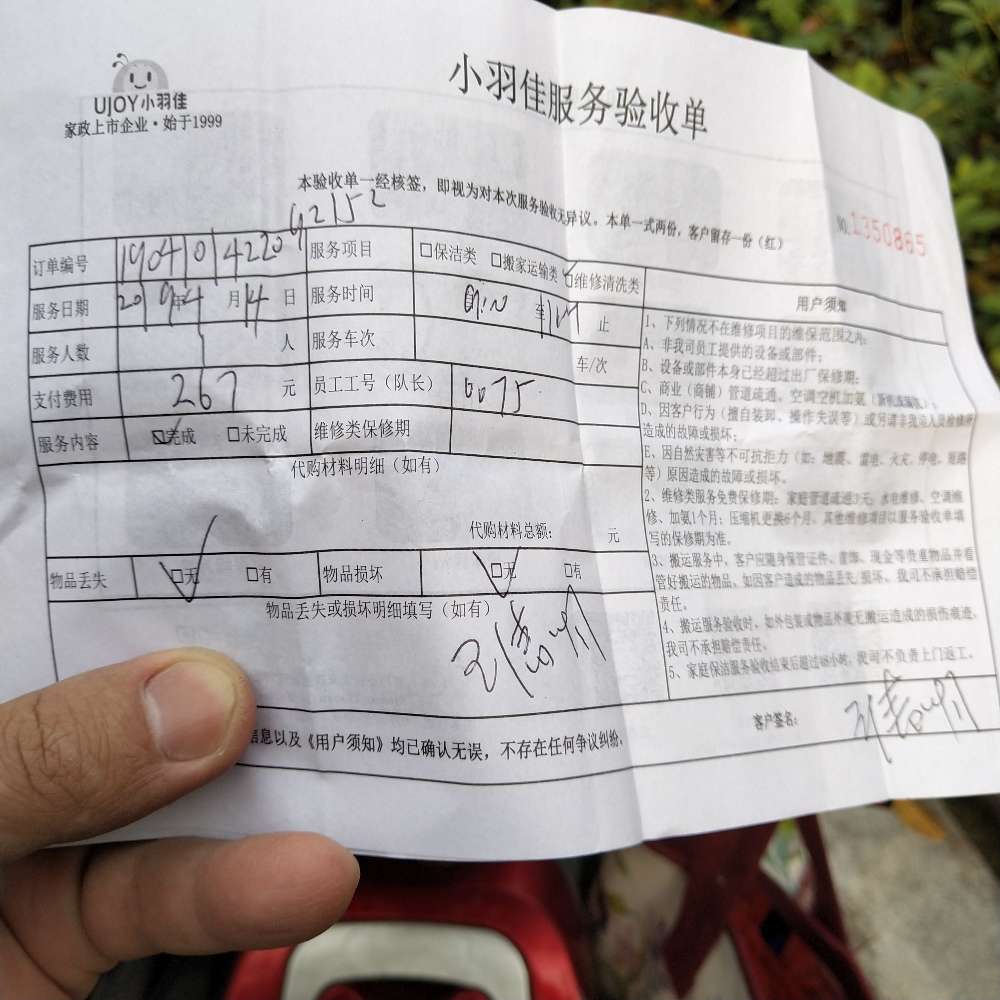 UJOY小羽佳
家政上市企业·始于1999
小羽佳服务验收单
本验收单一经核签，即视为对本次服务验收无异议。本单一式两份，客户留存一份（红）
NO.1350865
订单编号 190410142209 92152 服务项目 □保洁类 □搬家运输类 ☑维修清洗类
服务日期 2019年4月14日 服务时间 至 止
服务人数 1 人 服务车次 车/次
支付费用 267 元 员工工号（队长） 0075
服务内容 ☑完成 □未完成 维修类保修期
代购材料明细（如有）
代购材料总额： 元
物品丢失 ☑无 □有 物品损坏 ☑无 □有
物品丢失或损坏明细填写（如有）
用户须知
1、下列情况不在维修项目的维保范围之内：
A、非我司员工提供的设备或部件；
B、设备或部件本身已经超过出厂保修期；
C、商业（商铺）管道疏通，空调空机加氨
D、因客户行为（擅自装卸、操作失误等）或另请非我司人员检修所
造成的故障或损坏；
E、因自然灾害等不可抗拒力（如：地震、雷电、火灾、停电、短路
等）原因造成的故障或损坏。
2、维修类服务免费保修期：家庭管道疏通3天，水电维修、空调维
修、加氨1个月；压缩机更换6个月，其他维修项目以服务验收单填
写的保修期为准。
3、搬运服务中，客户应随身保管证件、首饰、现金等贵重物品并看
管好搬运的物品，如因客户造成的物品丢失/损坏，我司不承担赔偿
责任。
4、搬运服务验收时，如外包装或物品外观无搬运造成的损伤痕迹，
我司不承担赔偿责任。
5、家庭保洁服务验收结束后超过48小时，我司不负责上门返工。
信息以及《用户须知》均已确认无误，不存在任何争议纠纷。
客户签名：